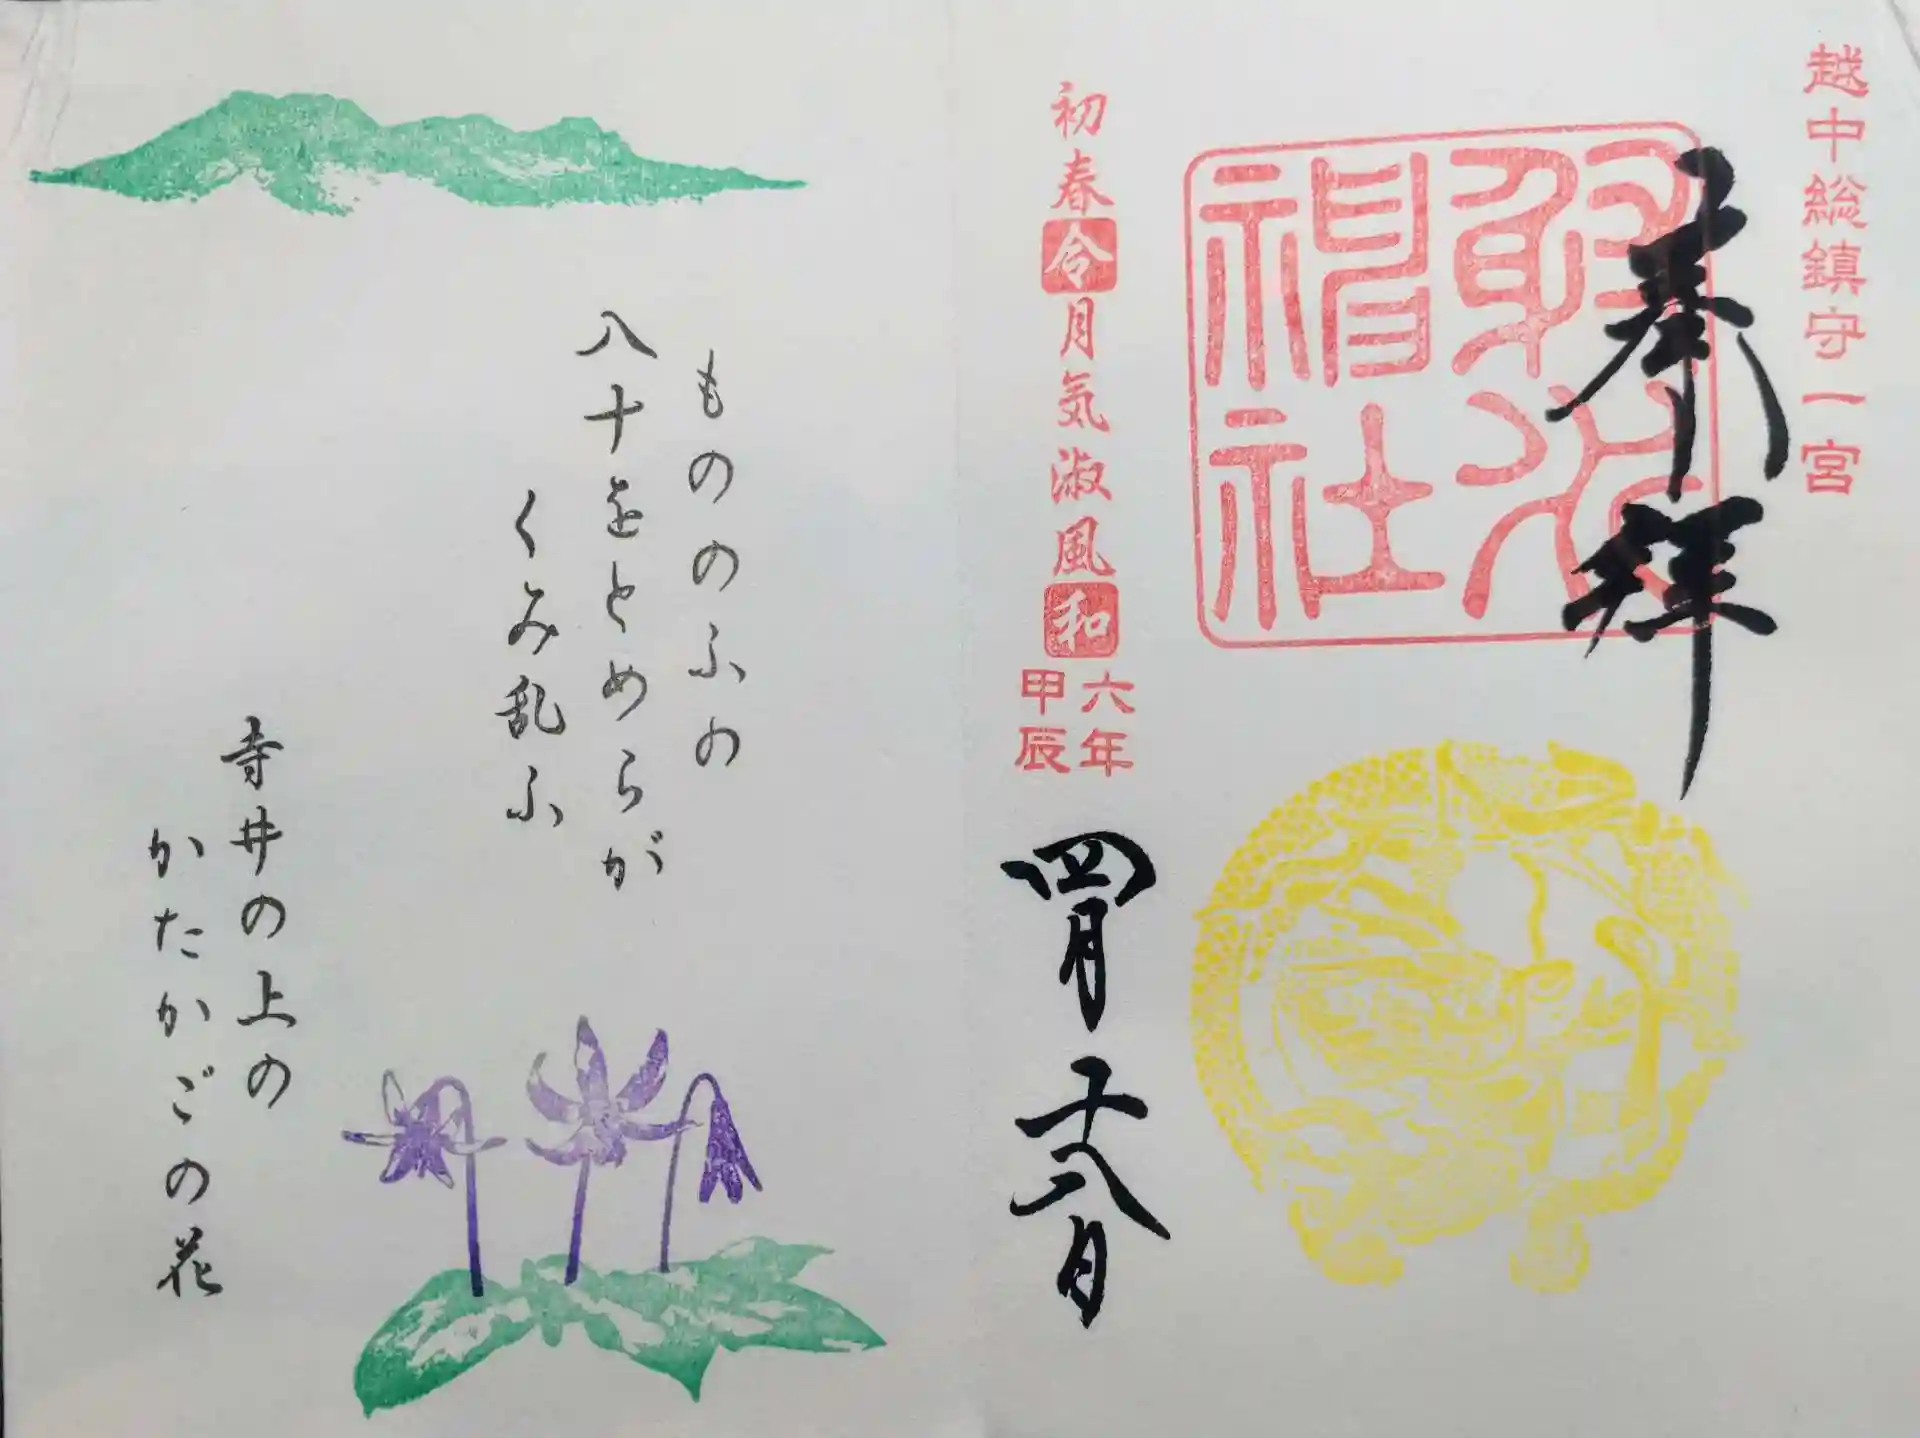 越中総鎮守一宮
奉拝
射水神社
初春令月気淑風和
六年
甲辰
四月十八日
もののふの
八十をとめらが
くみ乱ふ
寺井の上の
かたかごの花